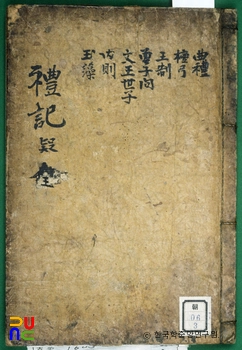 曲禮
檀弓
王制
曾子問
文王世子
內則
玉藻
禮記疑
全
© 한국학중앙연구원